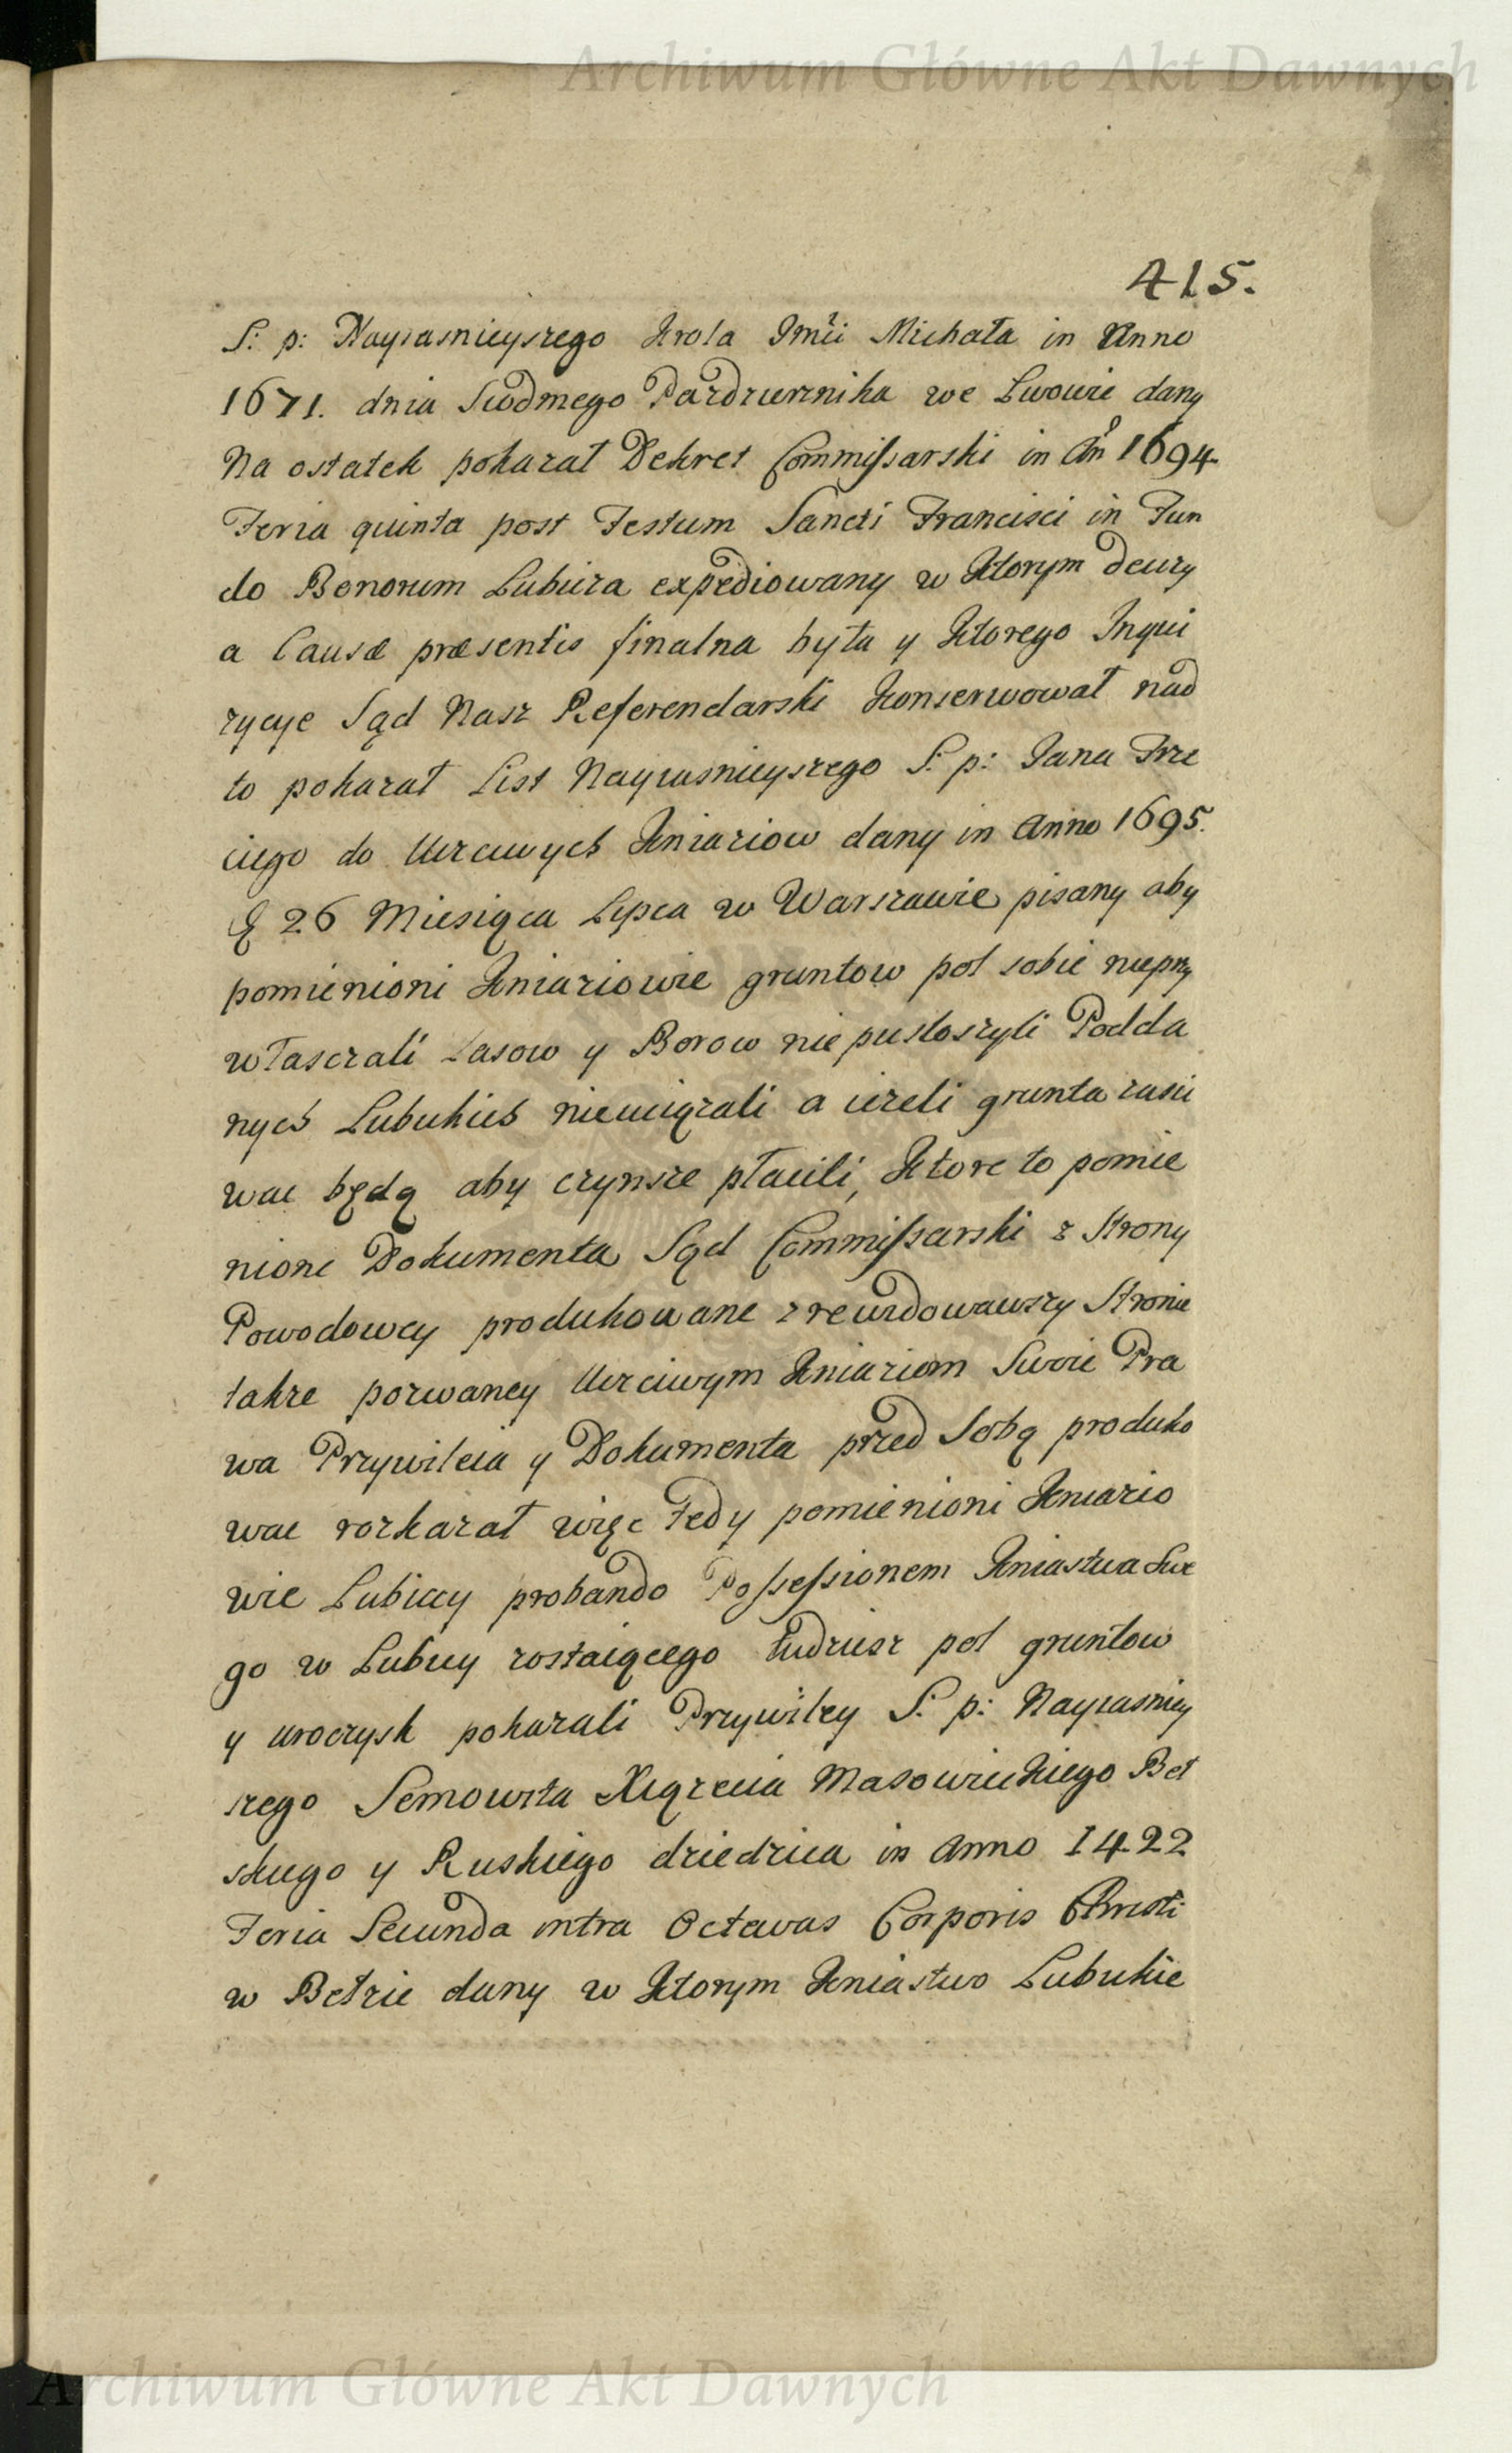 Archiwum Główne Akt Dawnych
415.
S: p: Nayiasnieyszego Krola Jmći Michała in Anno
1671. dnia Siodmego Pazdziernika we Lwowie dany
Na ostatek pokazał Dekret Commissarski in Anº 1694
Feria quinta post Festum Sancti Francisci in Fun
do Bonorum Lubicza expediowany w Ktorym decizy
a Causæ præsentis finalna była y Ktorego Inqui
zycye Sąd Nasz Referendarski Konserwował nad
to pokazał List Nayiasnieyszego S: p: Jana Trze
ciego do Uczciwych Kniaziow dany in Anno 1695.
26 Miesiąca Lipca w Warszawie pisany aby
pomienioni Kniaziowie gruntow pol sobie nieprzy
właszczali Lasow y Borow nie pustoszyli Podda
nych Lubickich nieuciązali a iezeli grunta zasie
wac będą aby czynsze płacili, Ktore to pomie
nione Dokumenta Sąd Commissarski z Strony
Powodowey produkowane zrewidowawszy Stronie
takze pozwaney Uczciwym Kniaziom Swoie Pra
wa Przywileia y Dokumenta przed Sobą produko
wac rozkazał więc Tedy pomienioni Kniazio
wie Lubiccy probando Possessionem Kniastwa Swe
go w Lubicy zostaiącego tudziesz pol gruntow
y uroczysk pokazali Przywiley S: p: Nayiasniey
szego Semowita Xiązecia Masowieckiego Beł
skiego y Ruskiego dziedzica in Anno 1422
Feria Secunda intra Octavas Corporis Christi
w Bełzie dany w Ktorym Kniastwo Lubickie
Archiwum Główne Akt Dawnych